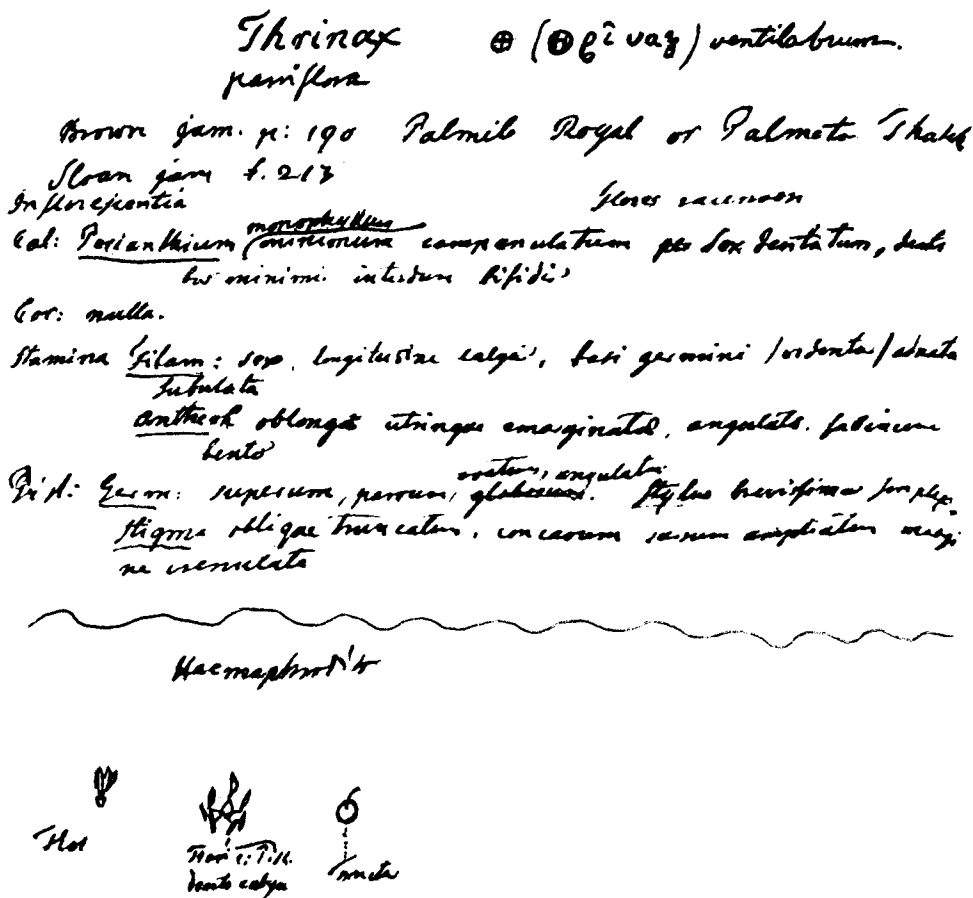 Thrinax ⊕ (Θρίναξ) ventilabrum.
parviflora
Brown jam. p: 190 Palmeto Royal or Palmeto Thatch
Sloan jam t. 213
Inflorescentia flores racemosi
monophyllum
Cal: Perianthium minimum campanulatum sex dentatum, denti
bus minimis interdum bifidis
Cor: nulla.
Stamina Filam: sex, longitudine calycis, basi germini adnata
subulata
Antheræ oblongæ utrinque emarginatæ, angulatæ.
ovatum, angulatum
Pist: Germ: superum, parvum, globosum. Stylus brevissimus simplex.
Stigma oblique truncatum, concavum ampliatum margi
ne crenulato
Haemaphrodit
Flos
Flori c: Pist.
fructus